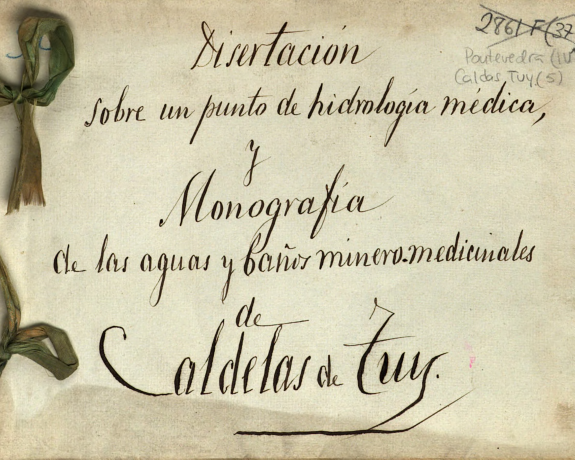 2861 F (37
Pontevedra (IV
Caldas, Tuy (5)
Disertación
sobre un punto de hidrología médica,
y
Monografía
de las aguas y baños minero-medicinales
de
Caldelas de Tuy.